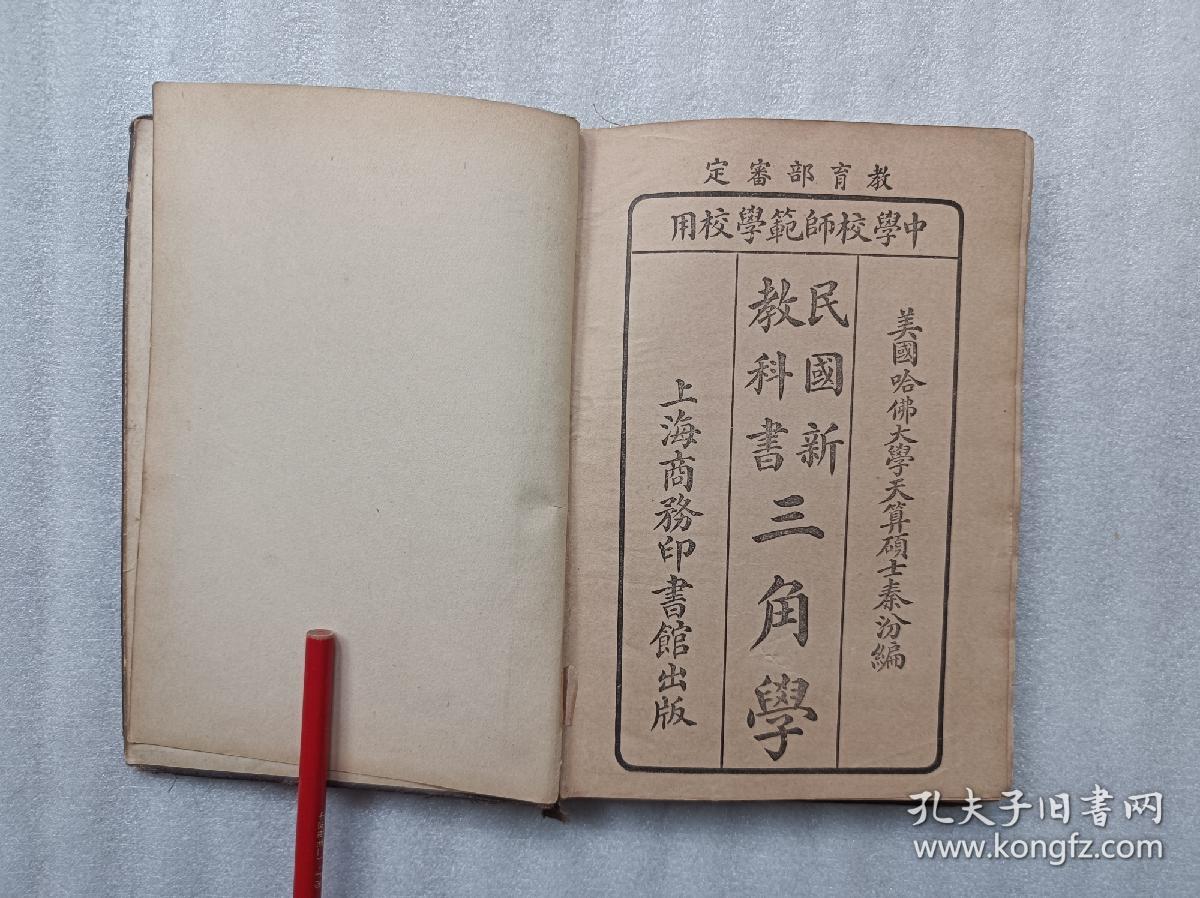 教育部審定
中學校師範學校用
美國哈佛大學天算碩士秦汾編
民國新
教科書
三角學
上海商務印書館出版
孔夫子旧书网
www.kongfz.com